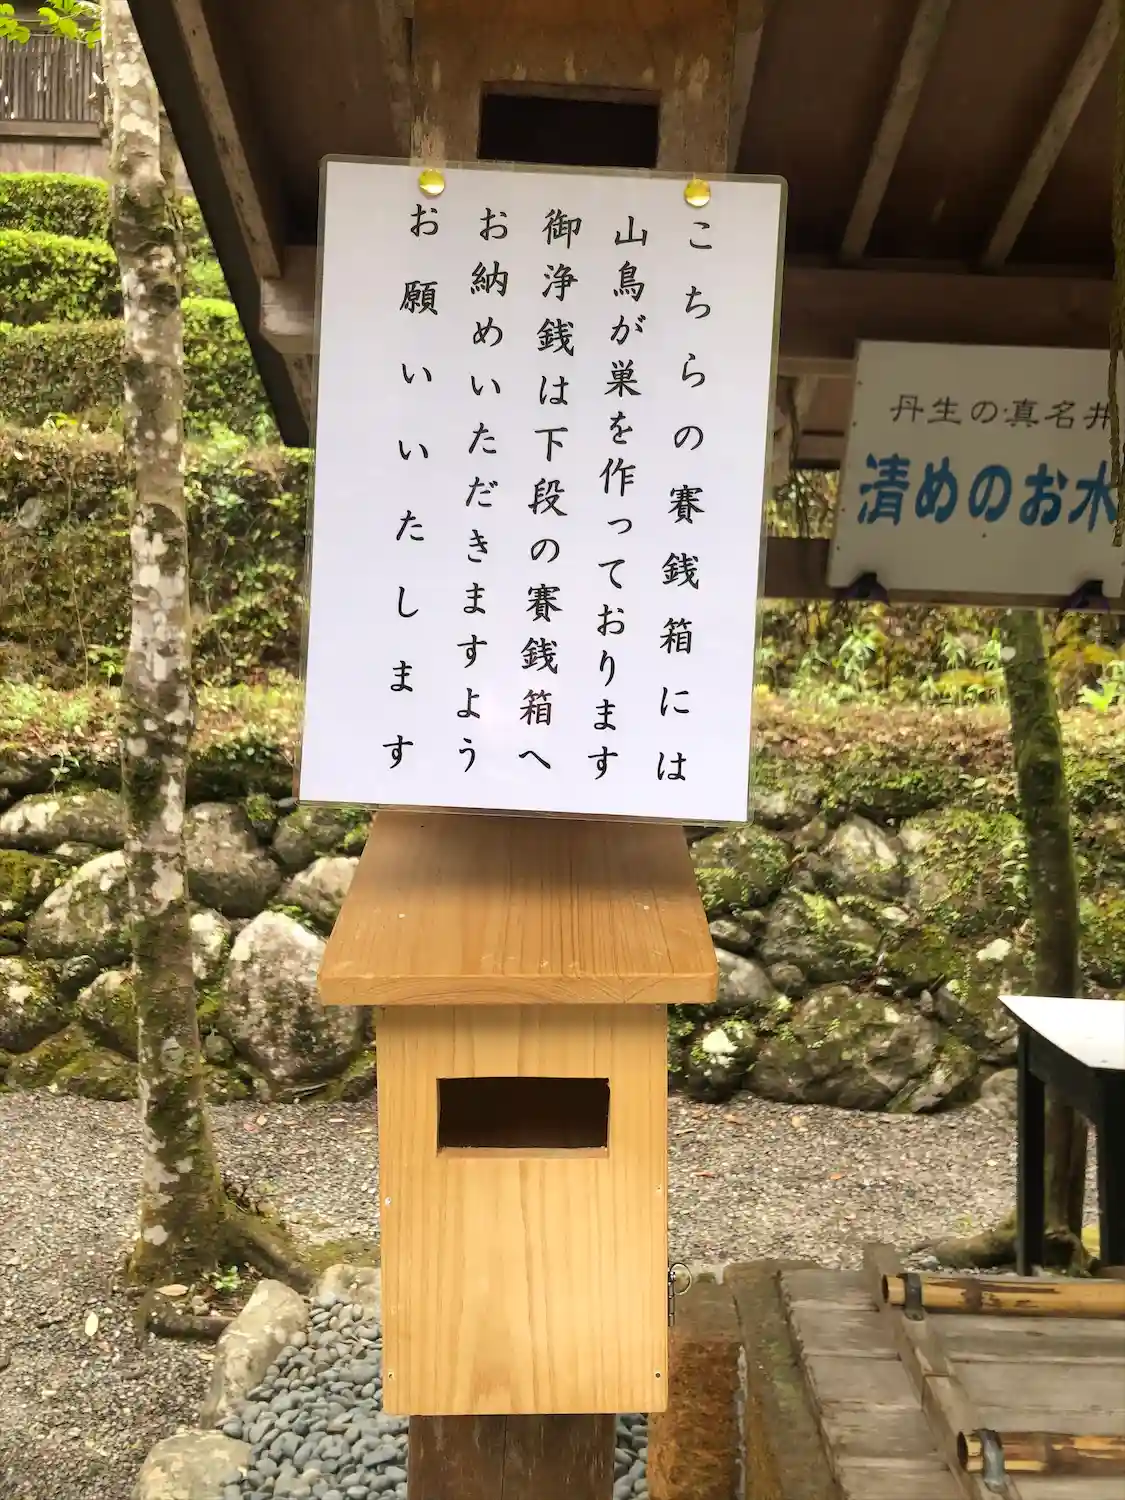 こちらの賽銭箱には
山鳥が巣を作っております
御浄銭は下段の賽銭箱へ
お納めいただきますよう
お願いいたします
丹生の真名井
清めのお水